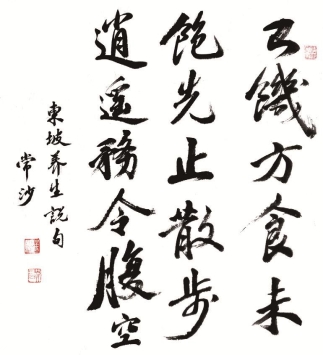 已饑方食未
飽先止散步
逍遥務令腹空
東坡养生説句
常沙